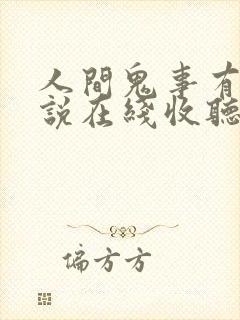 人間鬼事有
說在綫收聽
偏方方